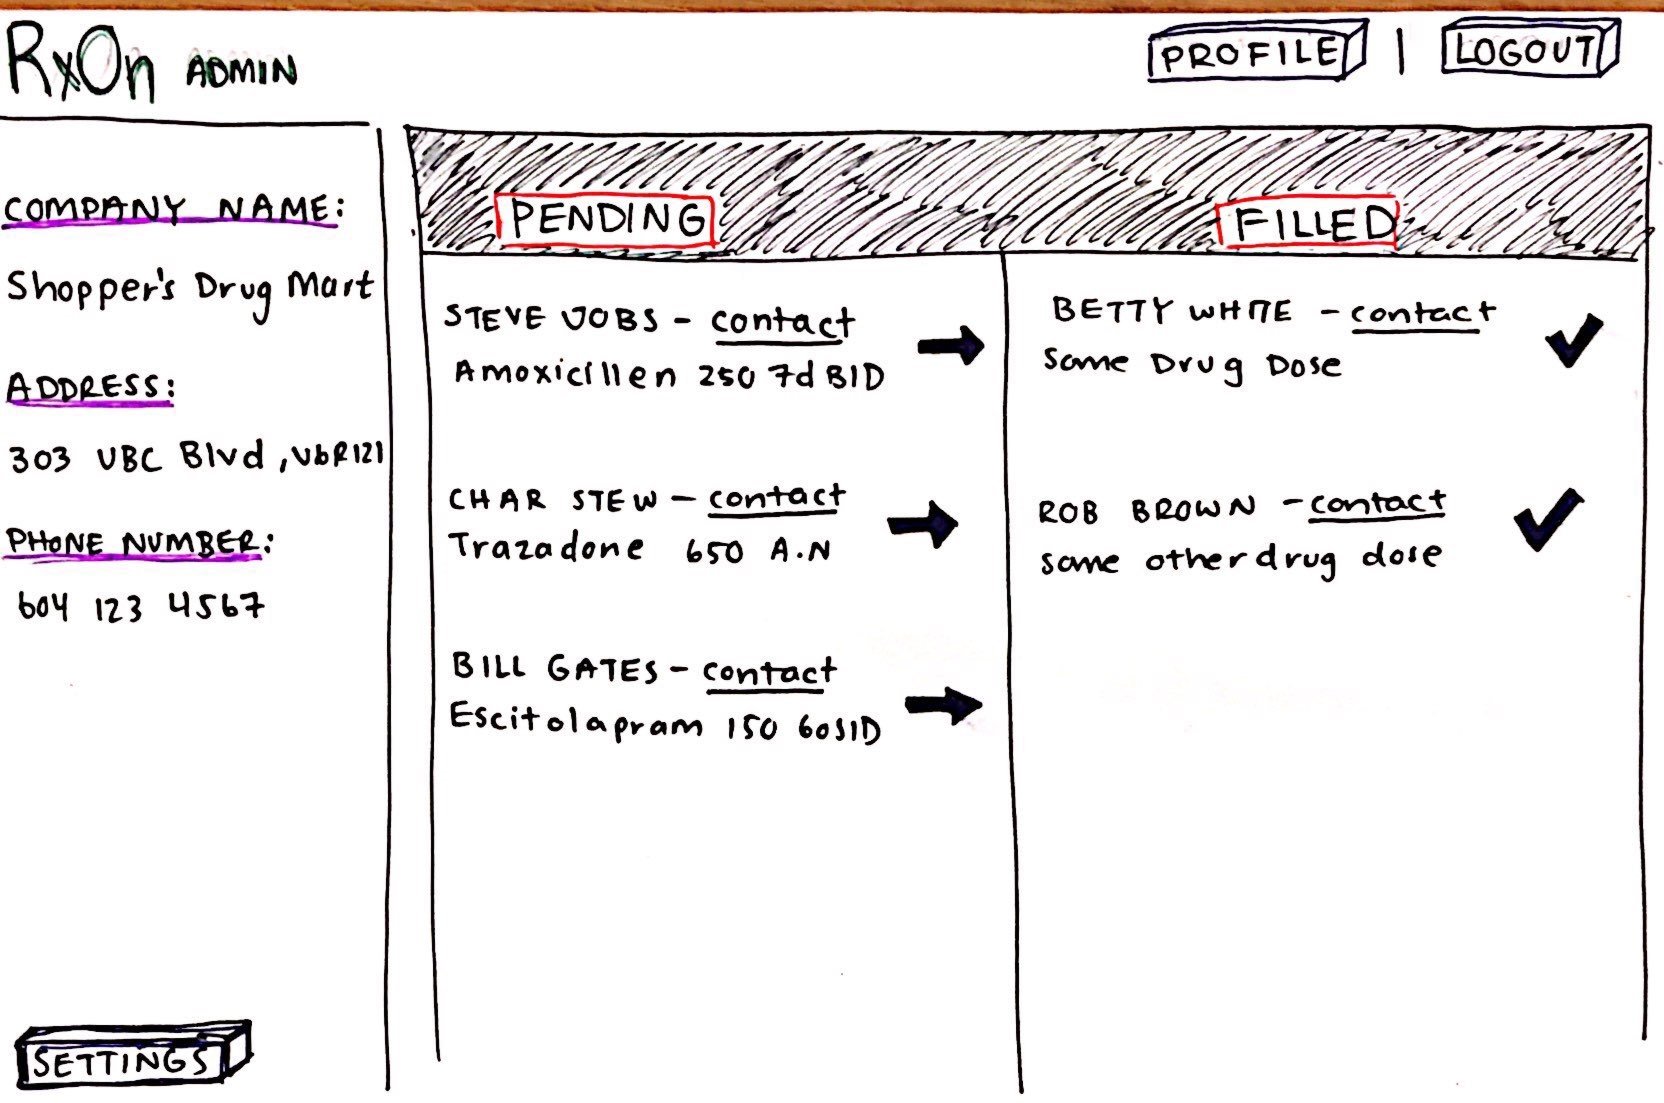 RxOn ADMIN
PROFILE | LOGOUT
COMPANY NAME:
Shopper's Drug Mart
ADDRESS:
303 UBC Blvd, V6R121
PHONE NUMBER:
604 123 4567
SETTINGS
PENDING
STEVE JOBS - contact
Amoxicillen 250 7d BID
CHAR STEW - contact
Trazadone 650 A.N
BILL GATES - contact
Escitolapram 150 60SID
FILLED
BETTY WHITE - contact
Some Drug Dose
ROB BROWN - contact
some other drug dose